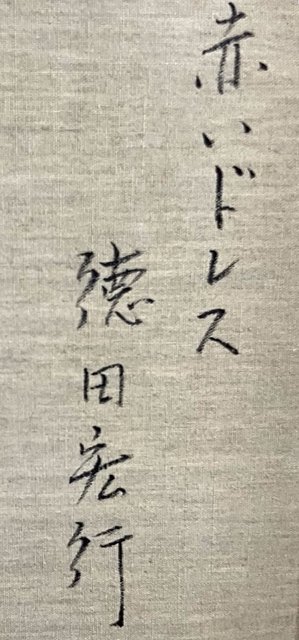 赤いドレス
德田宏行